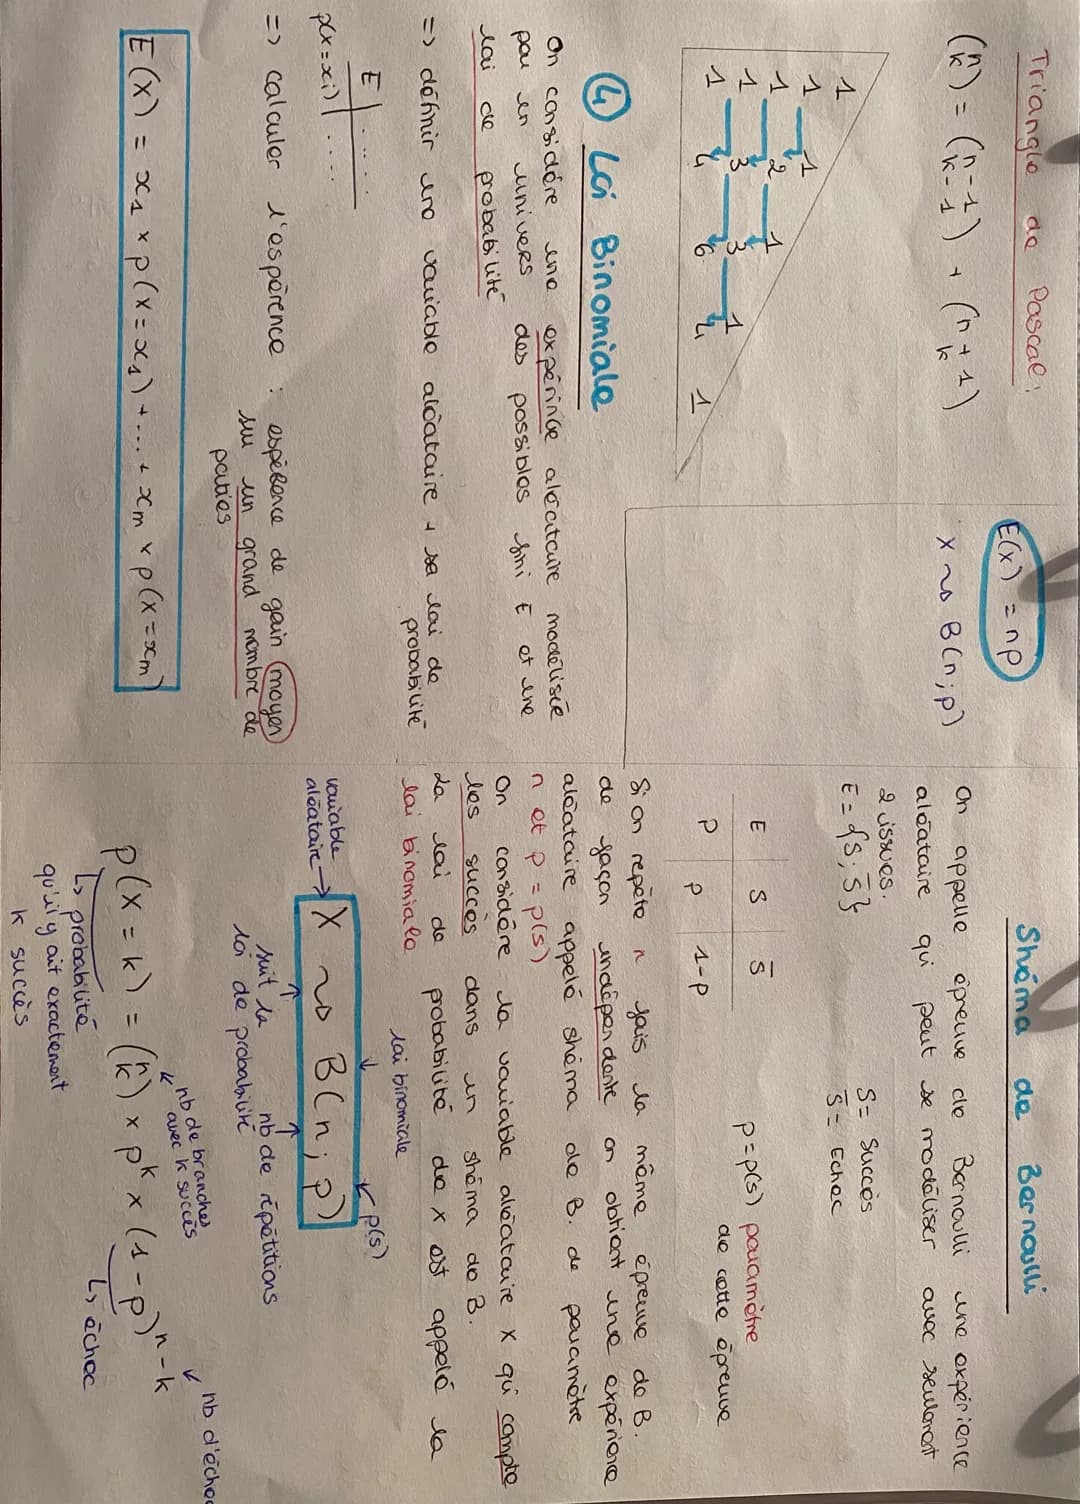 Triangle de Pascal :
(n k) = (n-1 k-1) + (n+1 k)
1
1 1
1 2 1
1 3 3 1
1 4 6 4 1
E(x) = np
X ~ B(n ; p)
④ Loi Binomiale
On considère une expérince aléatoire modélisée
par un univers des possibles fini E et une
loi de probabilité
=> définir une variable aléatoire + sa loi de
probabilité
E | .. ...
p(x = xi) | ....
=> calculer l'espérence : espérence de gain moyen
su un grand nombre de
parties
E(X) = x₁ × p(X = x₁) + ... + xₘ × p(X = xₘ)
Shéma de Bernoulli
On appelle épreuve de Bernoulli une expérience
aléatoire qui peut se modéliser avec seulement
2 issues.
S = Succès
E = {S ; S̅}
S̅ = Echec
E | S | S̅
P | p | 1-p
p = p(s) paramètre
de cette épreuve
Si on repète n fois la même épreuve de B.
de façon indépendante on obtient une expérience
aléatoire appelé shéma de B. de paramètre
n et p = p(s)
On considère la variable aléatoire X qui compte
les succès dans un shéma de B.
La loi de probabilité de X est appelé la
loi binomiale
loi binomiale
↙ p(s)
variable
aléatoire → X ~ B(n ; p)
suit la
loi de probabilité
nb de répétitions
nb de branches
avec k succès
nb d'échec
p(X = k) = (n k) × pᵏ × (1 - p)ⁿ⁻ᵏ
↳ échec
↳ probabilité
qu'il y ait exactement
k succès